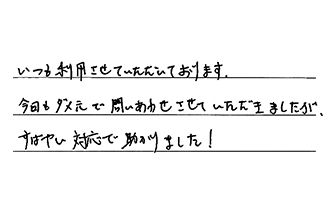 いつも利用させていただいております。
今回もダメ元で問いあわせさせていただきましたが、
すばやい対応で助かりました！